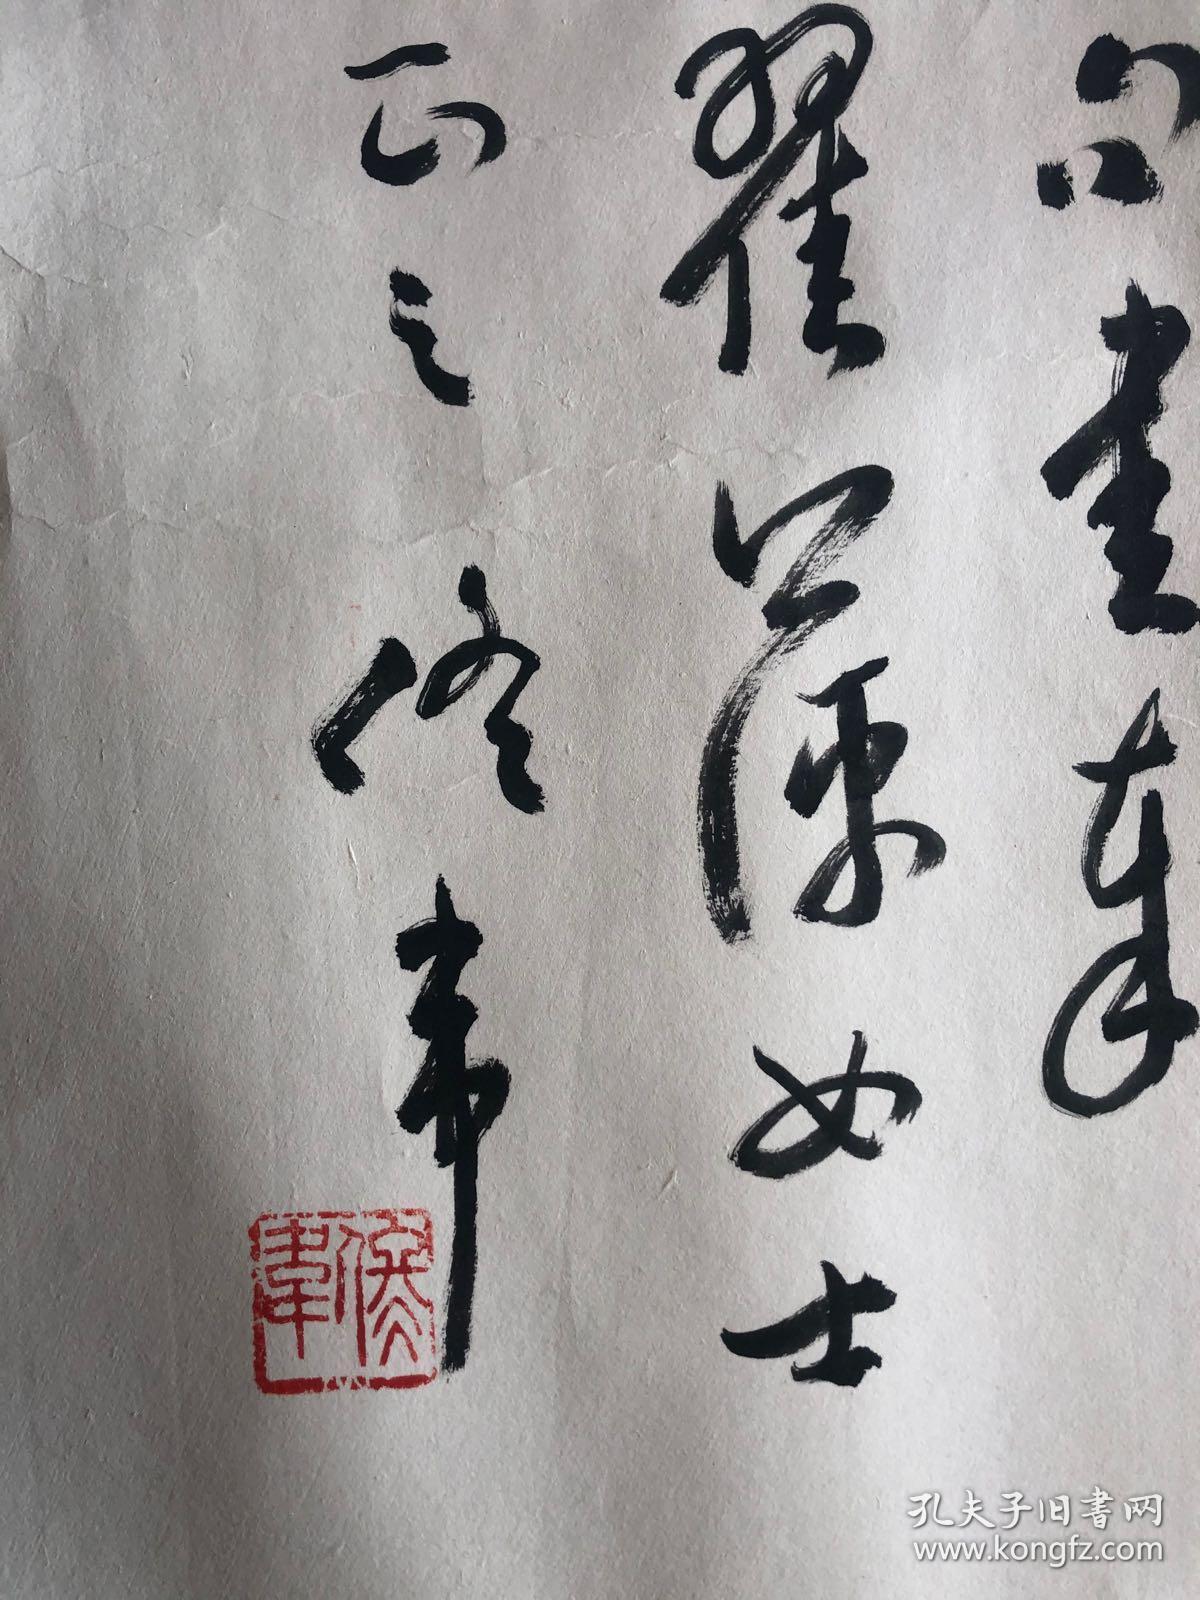 句书奉
翟萍女士
正之 侯韦
侯韋
孔夫子旧书网
www.kongfz.com